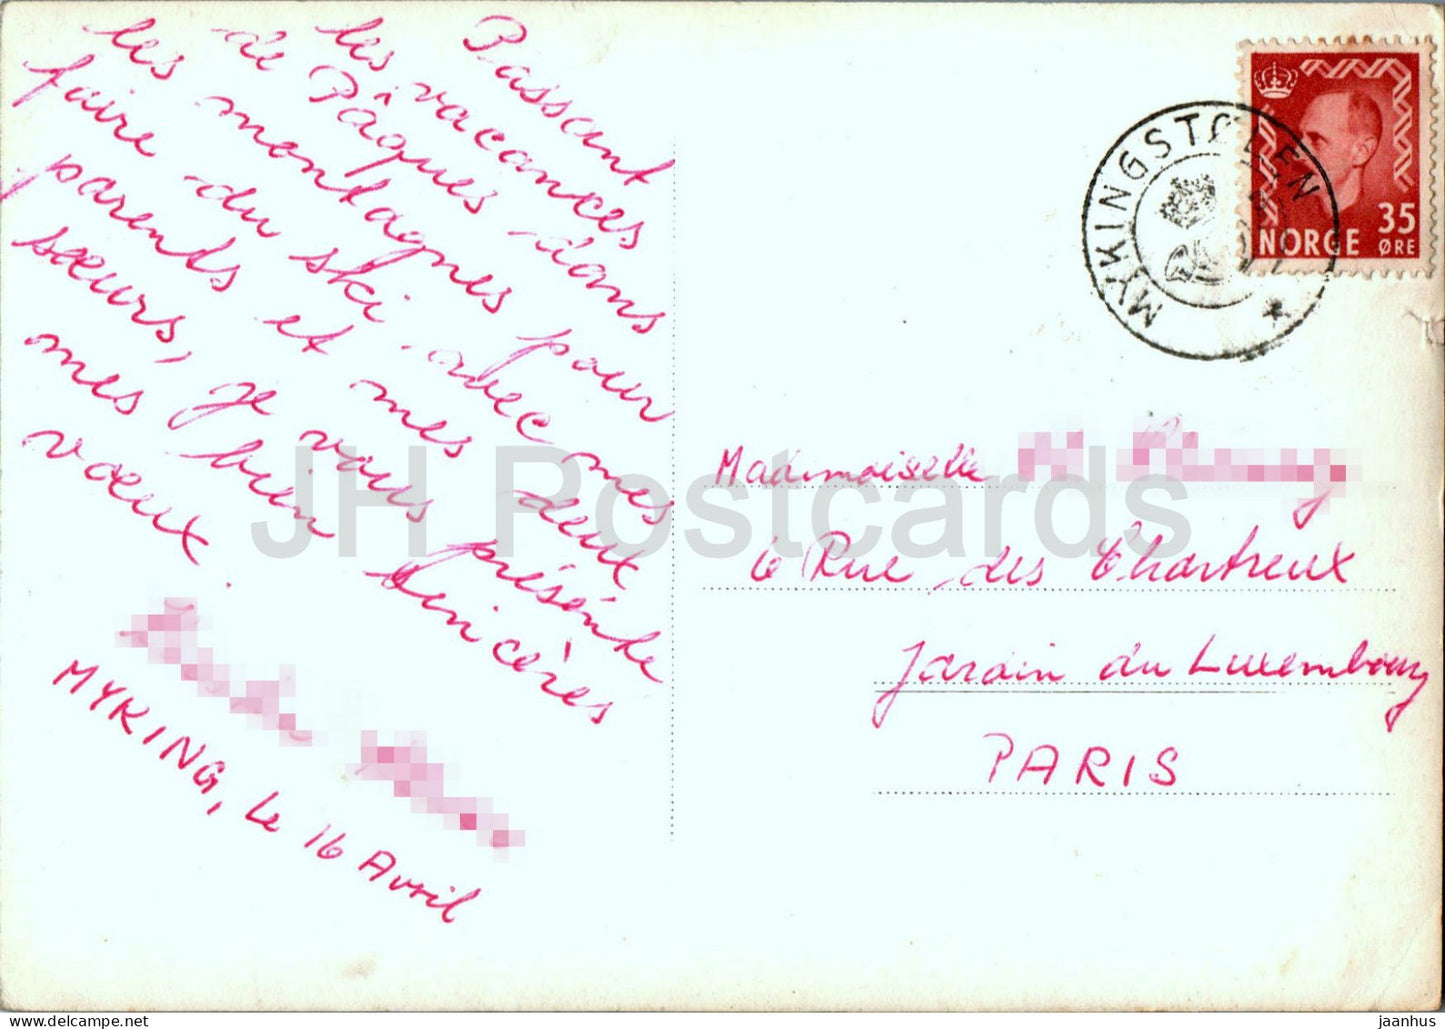 Passant
les vacances
de Pâques dans
les montagnes pour
faire du ski avec mes
parents et mes deux
sœurs, je vous présente
mes bien sincères
vœux.
MYKING, le 16 Avril
MYKINGSTØLEN
NORGE 35 ØRE
Mademoiselle
6 Rue des Chartreux
Jardin du Luxembourg
PARIS
JH Postcards
jaanhus © www.delcampe.net